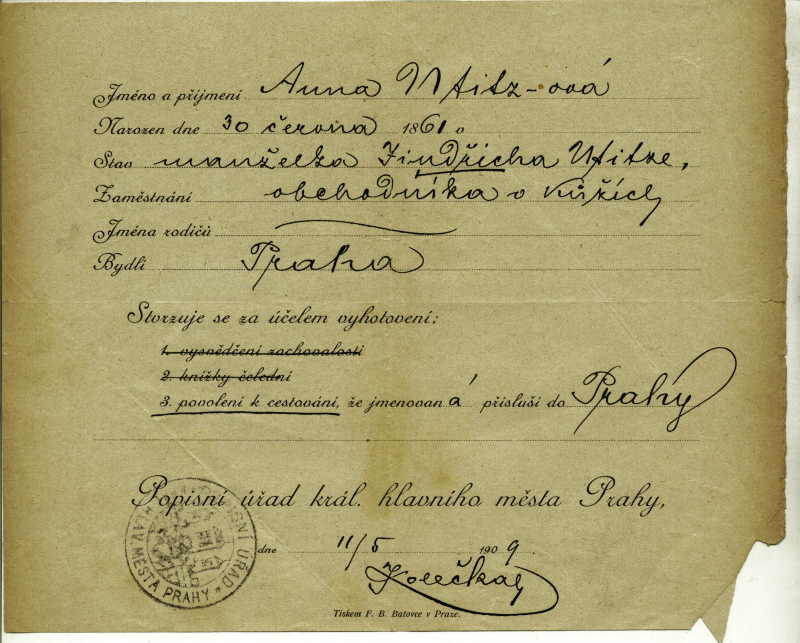 Jméno a příjmení Anna Utitz-ová
Narozen dne 30 června 1861 v
Stav manželka Jindřicha Utitze,
Zaměstnání obchodníka v kůžích
Jména rodičů
Bydlí Praha
Stvrzuje se za účelem vyhotovení:
1. vysvědčení zachovalosti
2. knížky čelední
3. povolení k cestování, že jmenovan á přísluší do Prahy
Popisní úřad král. hlavního města Prahy,
dne 11/5 1909.
POPISNÍ ÚŘAD HLAV. MĚSTA PRAHY
Tiskem F. B. Batovce v Praze.